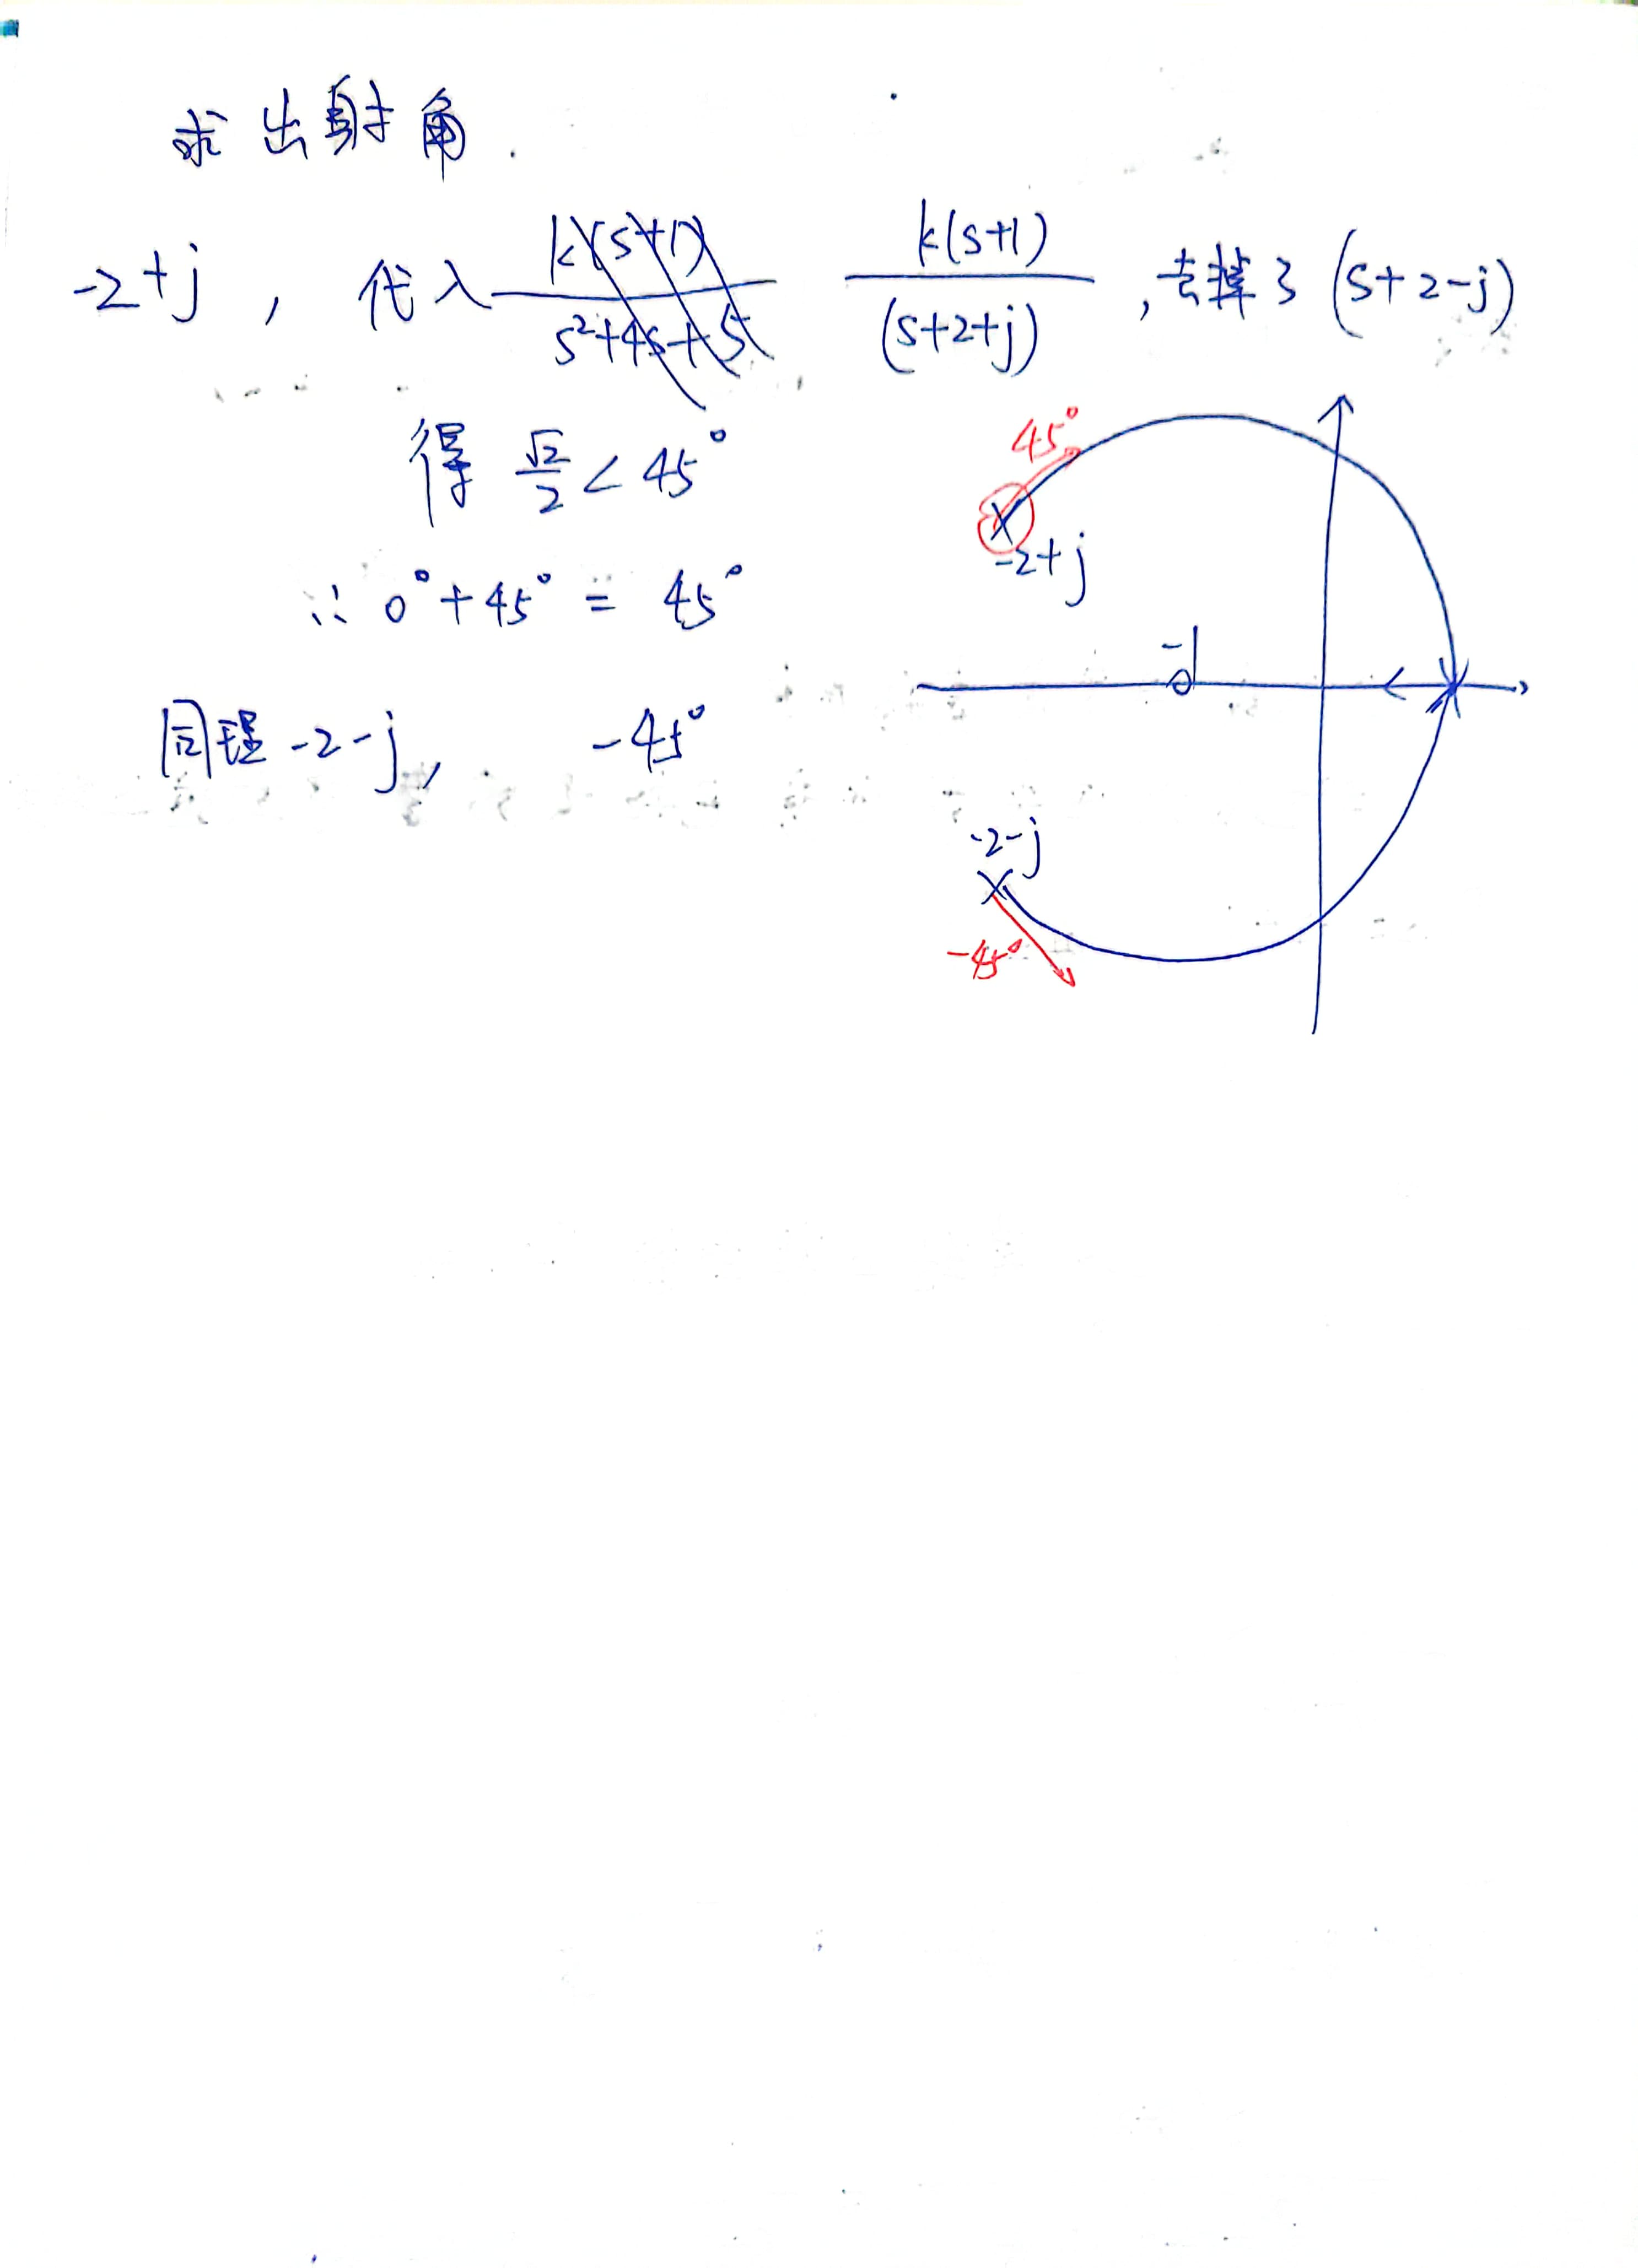 求出射角.
-2+j, 代入 k(s+1)/(s²+4s+5) k(s+1)/(s+2+j), 去掉了(s+2-j)
得 √2/2 < 45°
∴ 0°+45° = 45°
同理 -2-j, -45°
45°
-2+j
-1
-2-j
-45°